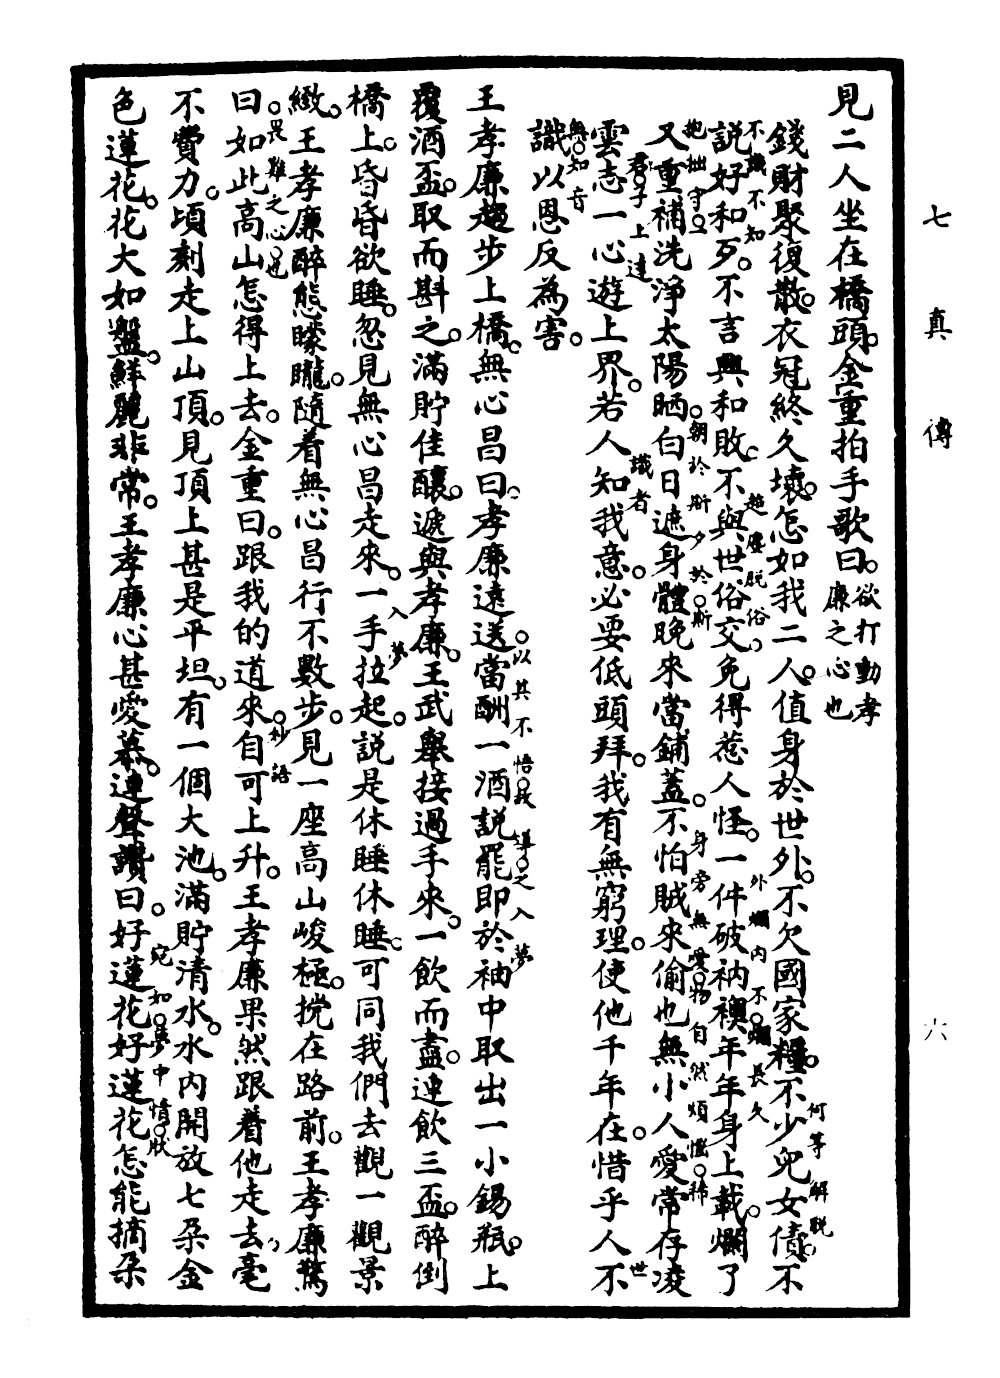 七真傳
六
見二人坐在橋頭。金重拍手歌曰。欲打動孝廉之心也
錢財聚復散。衣冠終久壞。怎如我二人。值身於世外。不欠國家糧。不少兒女債。何等解脫不
說好和歹。不識不知不言興和敗。不與世俗交。超塵脫俗免得惹人怪。一件破衲襖。年年身上載。爛了外爛內不爛長久
又重補。抱拙守〇洗淨太陽晒。白日遮身體。朝於斯夕於斯晚來當鋪蓋。不怕賊來偷。身旁無愛物自然煩惱稀也無小人愛。常存凌
雲志。君子上達一心遊上界。若人知我意。識者必要低頭拜。我有無窮理。使他千年在。惜乎人不世
識。無知音以恩反為害。
王孝廉趨步上橋。無心昌曰。孝廉遠送。當酬一酒。以其不悟我導之入夢說罷即於袖中取出一小錫瓶。上
覆酒盃。取而斟之。滿貯佳釀。遞與孝廉。王武舉接過手來。一飲而盡。連飲三盃。醉倒
橋上。昏昏欲睡。忽見無心昌走來。一手拉起。入夢說是休睡休睡。可同我們去觀一觀景
緻。王孝廉醉態矇矓。隨着無心昌行不數步。見一座高山峻極。攩在路前。王孝廉驚
曰。畏難之心也如此高山怎得上去。金重曰。跟我的道來。妙語自可上升。王孝廉果然跟着他走去。毫
不費力。頃刻走上山頂。見頂上甚是平坦。有一個大池。滿貯清水。水內開放七朶金
色蓮花。花大如盤。鮮麗非常。王孝廉心甚愛慕。連聲讚曰。宛如夢中情狀好蓮花好蓮花怎能摘朶